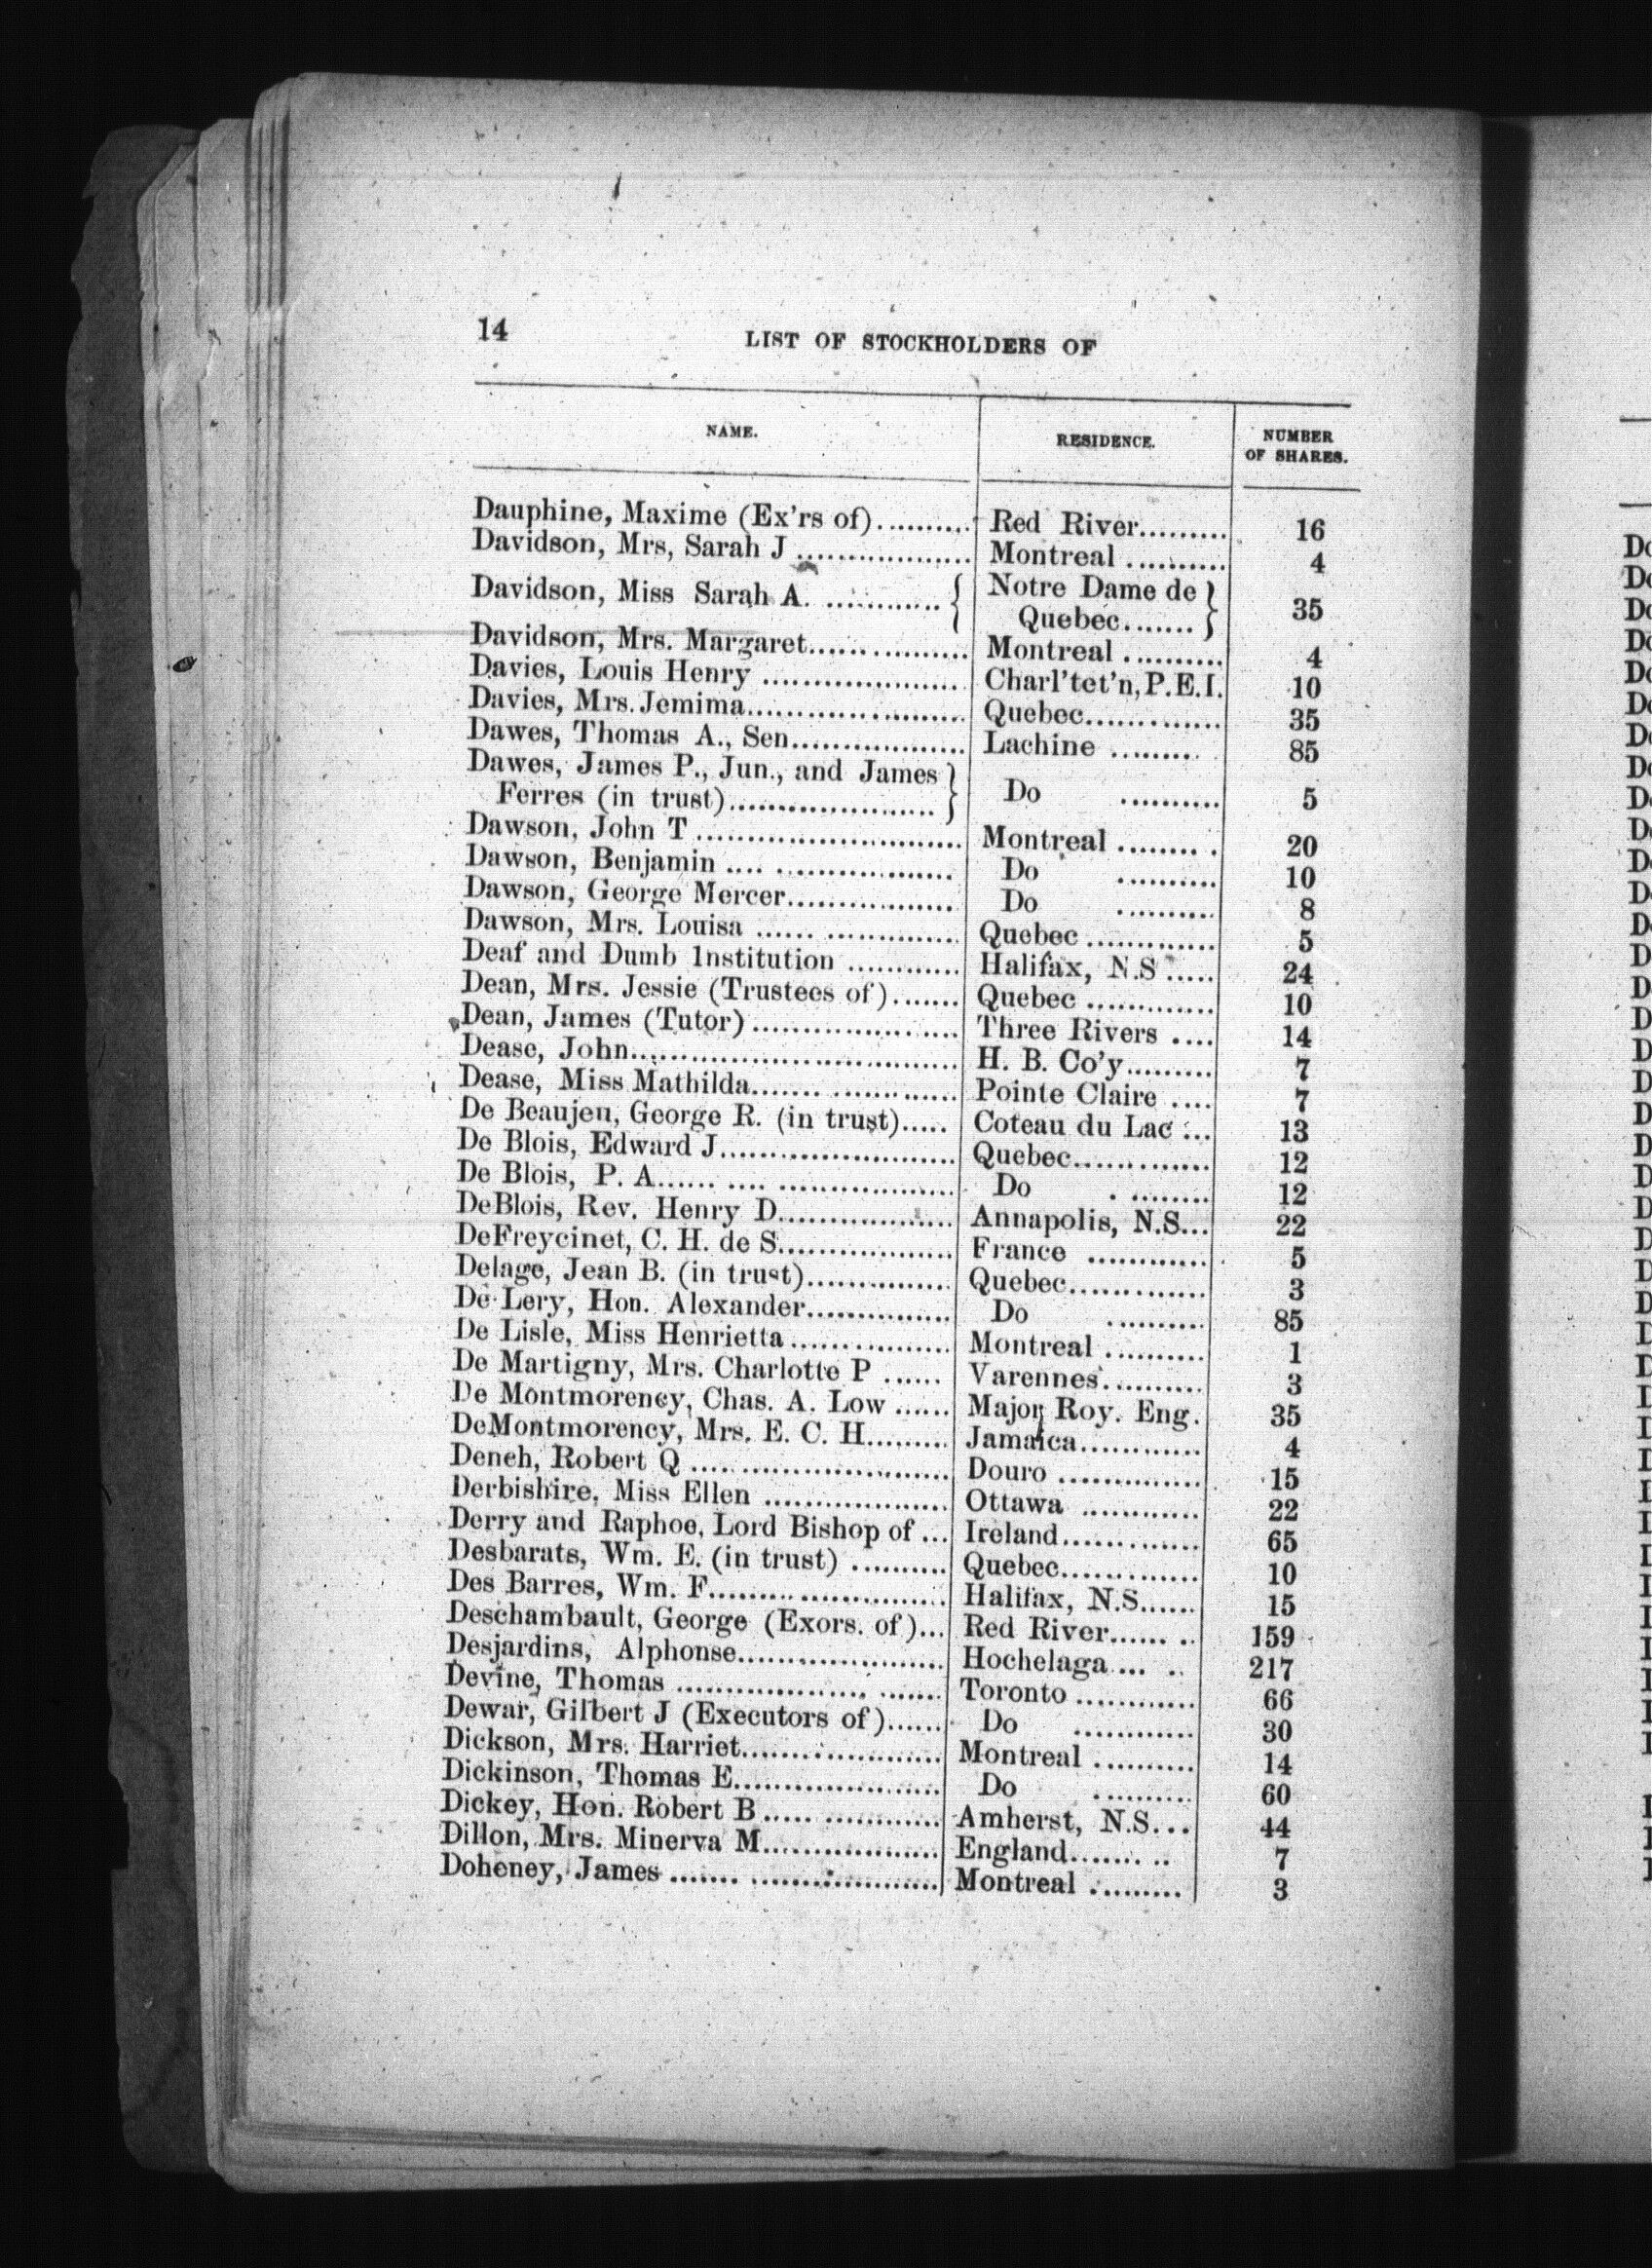 14
LIST OF STOCKHOLDERS OF
NAME. RESIDENCE. NUMBER
OF SHARES.
Dauphine, Maxime (Ex'rs of).......... Red River......... 16
Davidson, Mrs, Sarah J ................. Montreal .......... 4
Davidson, Miss Sarah A. ............ { Notre Dame de }
Quebec....... 35
Davidson, Mrs. Margaret................ Montreal .......... 4
Davies, Louis Henry .................... Charl'tet'n, P.E.I. 10
Davies, Mrs. Jemima...................... Quebec............. 35
Dawes, Thomas A., Sen................. Lachine ......... 85
Dawes, James P., Jun., and James }
Ferres (in trust).................... Do .......... 5
Dawson, John T .......................... Montreal ........ . 20
Dawson, Benjamin .... ................. Do .......... 10
Dawson, George Mercer................ Do .......... 8
Dawson, Mrs. Louisa ...... ............. Quebec ............. 5
Deaf and Dumb Institution ........... Halifax, N.S ..... 24
Dean, Mrs. Jessie (Trustees of)....... Quebec ............. 10
Dean, James (Tutor) .................... Three Rivers .... 14
Dease, John................................ H. B. Co'y......... 7
Dease, Miss Mathilda.................... Pointe Claire .... 7
De Beaujeu, George R. (in trust)..... Coteau du Lac ... 13
De Blois, Edward J....................... Quebec............. 12
De Blois, P. A...... .... ................. Do . ........ 12
DeBlois, Rev. Henry D................. Annapolis, N.S... 22
DeFreycinet, C. H. de S................. France ............ 5
Delage, Jean B. (in trust).............. Quebec............. 3
De Lery, Hon. Alexander.............. Do .......... 85
De Lisle, Miss Henrietta ............... Montreal .......... 1
De Martigny, Mrs. Charlotte P ...... Varennes.......... 3
De Montmorency, Chas. A. Low ...... Major Roy. Eng. 35
DeMontmorency, Mrs. E. C. H........ Jamaica............ 4
Deneh, Robert Q ......................... Douro .............. 15
Derbishire, Miss Ellen .................. Ottawa ............ 22
Derry and Raphoe, Lord Bishop of ... Ireland............. 65
Desbarats, Wm. E. (in trust) .......... Quebec............. 10
Des Barres, Wm. F....................... Halifax, N.S...... 15
Deschambault, George (Exors. of)... Red River...... .. 159
Desjardins, Alphonse.................... Hochelaga.... .. 217
Devine, Thomas ................... ....... Toronto ............ 66
Dewar, Gilbert J (Executors of)...... Do ............ 30
Dickson, Mrs. Harriet................... Montreal .......... 14
Dickinson, Thomas E.................... Do .......... 60
Dickey, Hon. Robert B..... ............ Amherst, N.S... 44
Dillon, Mrs. Minerva M................. England....... .. 7
Doheney, James ....... ................... Montreal ......... 3